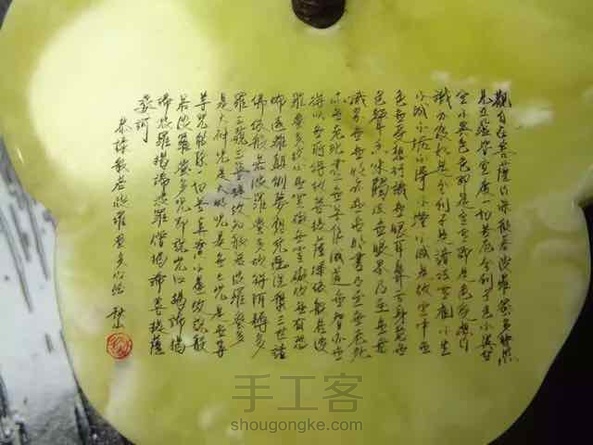 觀自在菩薩行深般若波羅蜜多時照
見五蘊皆空度一切苦厄舍利子色不異空
空不異色色即是空空即是色受想行
識亦復如是舍利子是諸法空相不生
不滅不垢不淨不增不減是故空中無
色無受想行識無眼耳鼻舌身意無
色聲香味觸法無眼界乃至無意
識界無無明亦無無明盡乃至無老死
亦無老死盡無苦集滅道無智亦無
得以無所得故菩提薩埵依般若波
羅蜜多故心無罣礙無罣礙故無有恐
怖遠離顛倒夢想究竟涅槃三世諸
佛依般若波羅蜜多故得阿耨多
羅三藐三菩提故知般若波羅蜜多
是大神咒是大明咒是無上咒是無等
等咒能除一切苦真實不虛故說般
若波羅蜜多咒即說咒曰揭諦揭
諦波羅揭諦波羅僧揭諦菩提薩
婆訶
恭錄般若波羅蜜多心經
手工客
shougongke.com